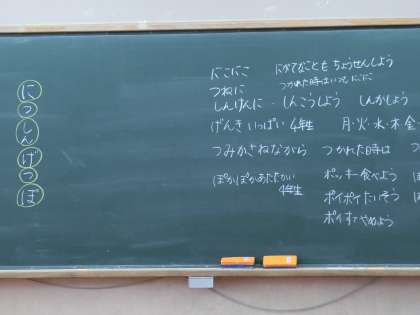 に
つ
しん
げ
つ
ぽ
にこにこ にがてなことも ちょうせんしよう
つねに つかれた時はいつもにこにこ
しんけんに ・しんこうしよう しんかしよう
げんき いっぱい 4年生 月・火・水・木・金
つみかさねながら つかれた時は つ
ぽかぽかあたたかい ポッキー食べよう
4年生 ポイポイたいそう
ポイすてやめよう